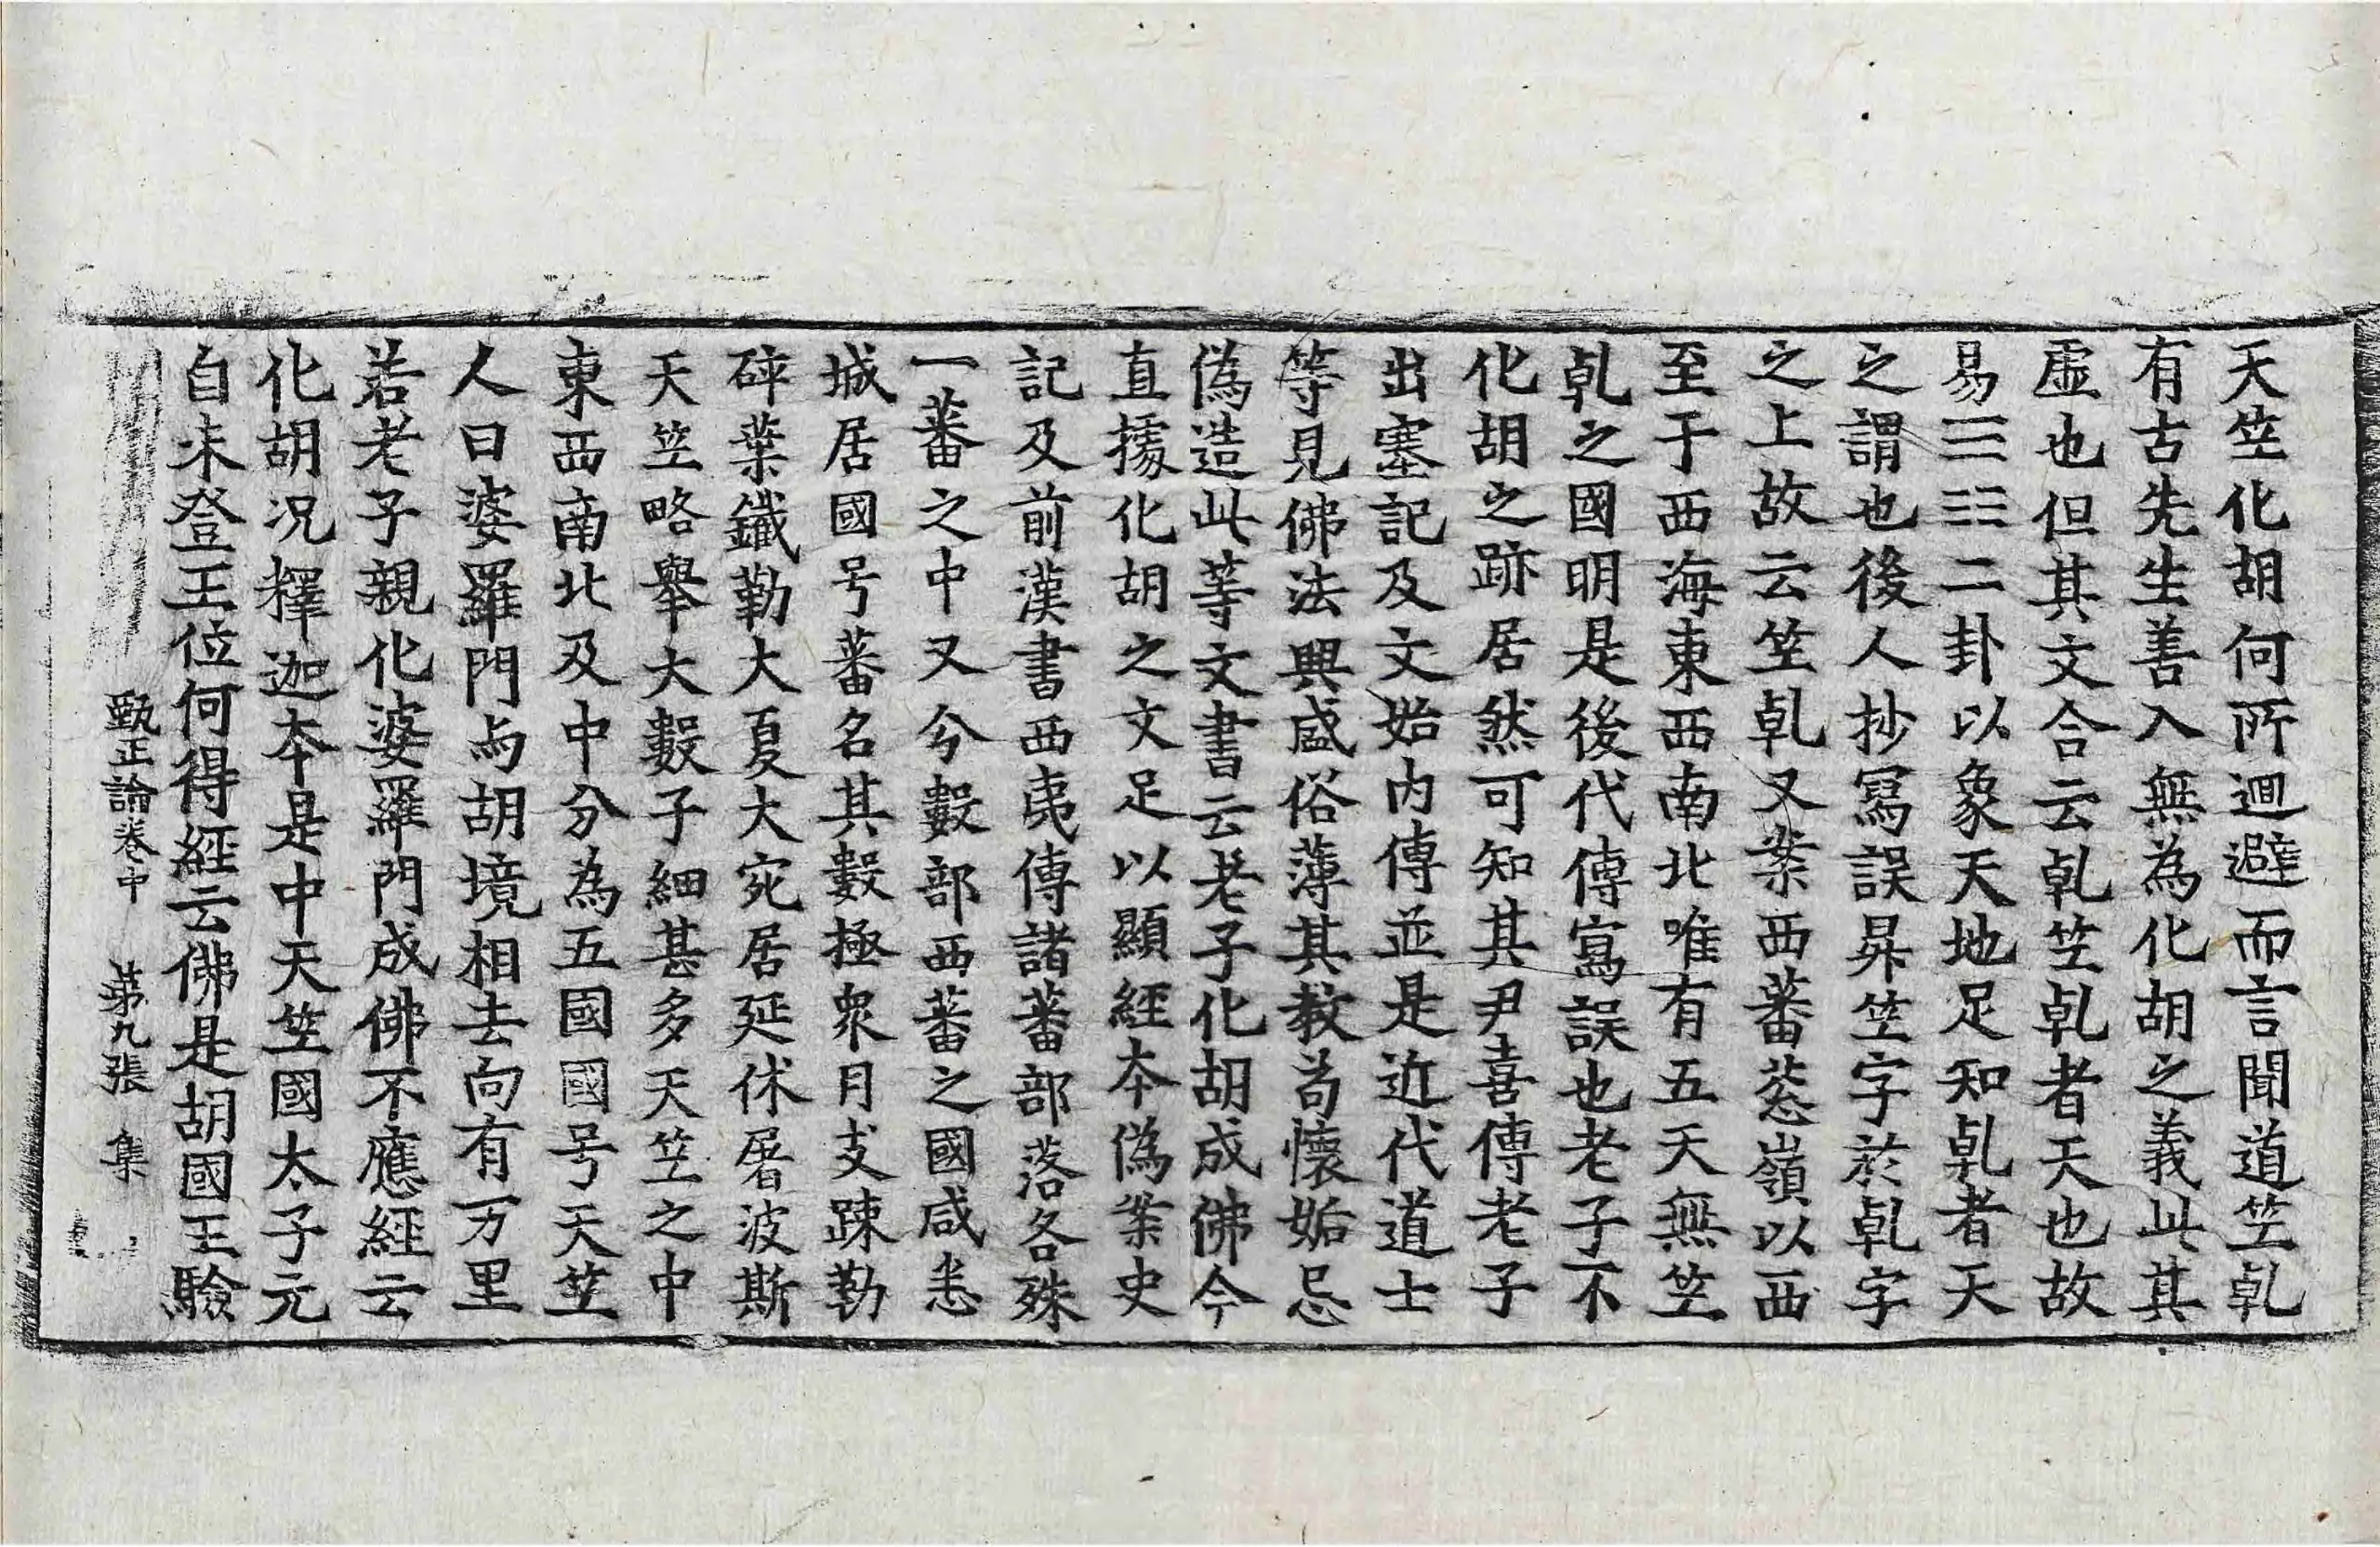 天竺化胡何所迴避而言聞道竺乹
有古先生善入無為化胡之義此其
虛也但其文合云乹竺乹者天也故
易☰☷二卦以象天地足知乹者天
之謂也後人抄寫誤昇竺字於乹字
之上故云竺乹又案西蕃葱嶺以西
至于西海東西南北唯有五天無竺
乹之國明是後代傳寫誤也老子不
化胡之跡居然可知其尹喜傳老子
出塞記及文始內傳並是近代道士
等見佛法興盛俗薄其教苟懷妬忌
偽造此等文書云老子化胡成佛今
直據化胡之文足以顯經本偽案史
記及前漢書西夷傳諸蕃部落各殊
一蕃之中又分數部西蕃之國咸悉
城居國号蕃名其數極衆月支踈勒
碎葉鐵勒大夏大宛居延休屠波斯
天竺略舉大數子細甚多天竺之中
東西南北及中分為五國國号天竺
人曰婆羅門与胡境相去向有一万里
若老子親化婆羅門成佛不應經云
化胡況釋迦本是中天竺國太子元
自未登王位何得經云佛是胡國王驗
甄正論卷中　第九張　集